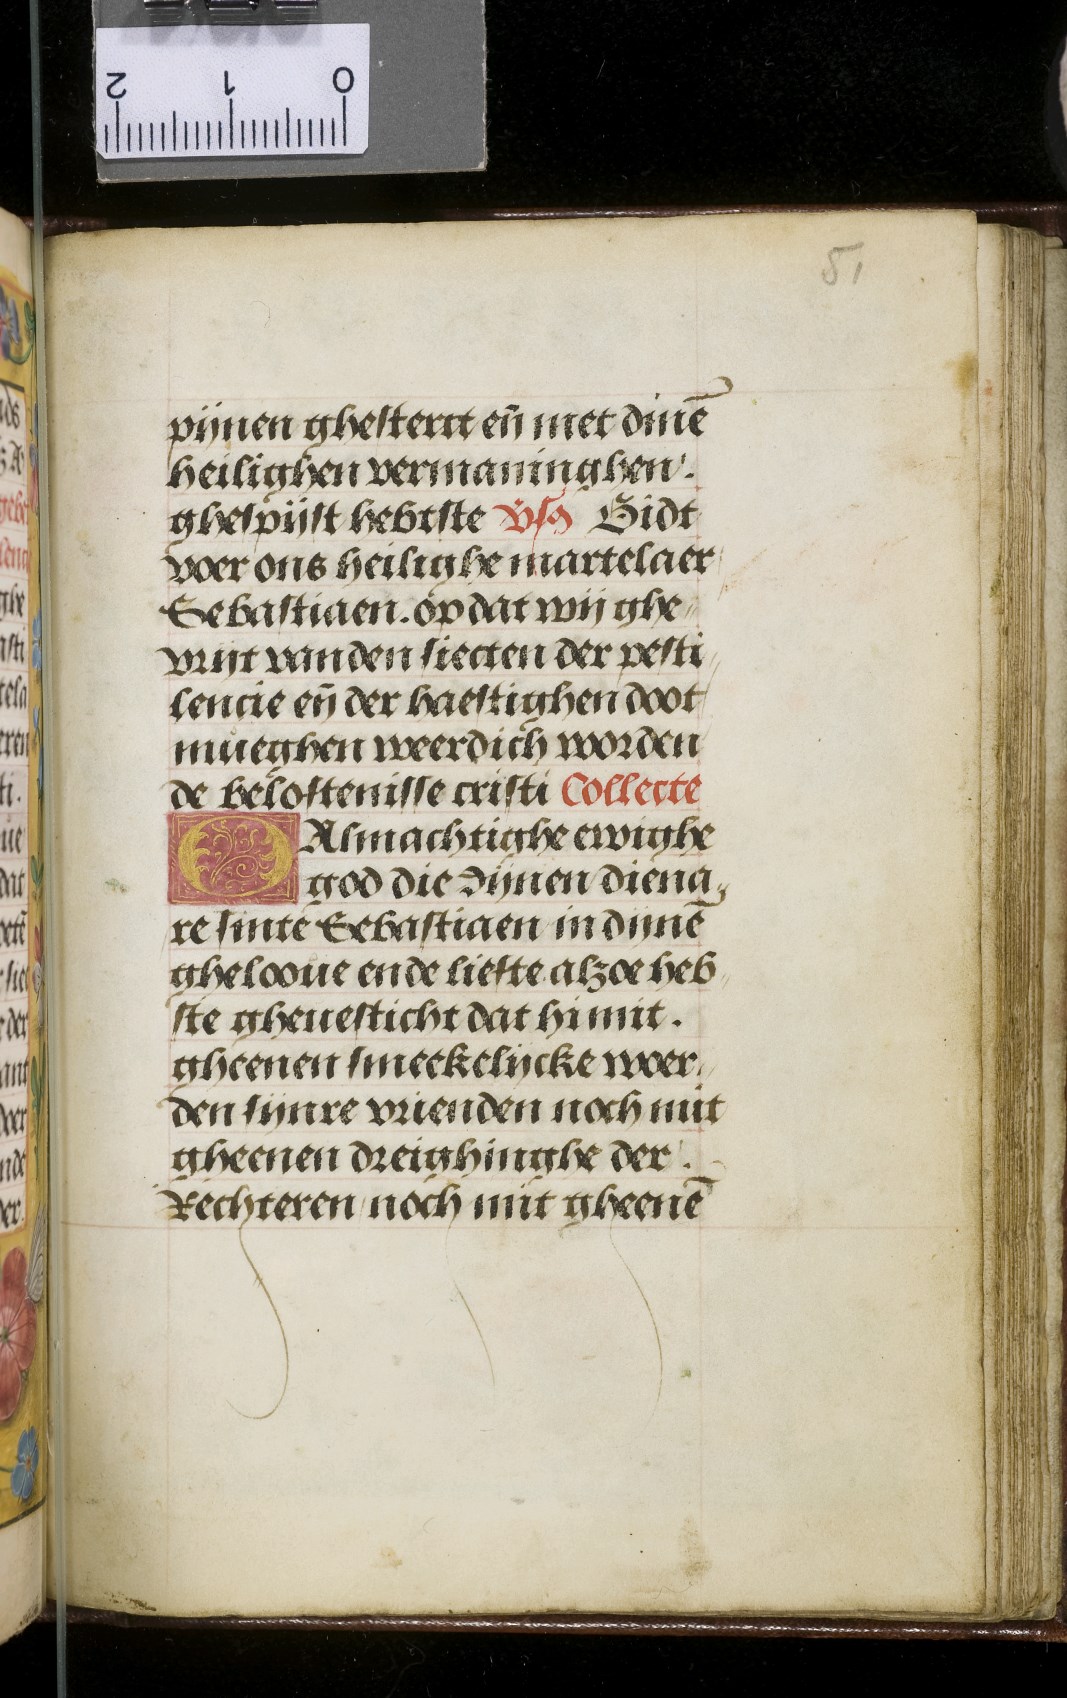 51
pijnen ghesterct en̄ met dinē
heilighen vermaninghen.
ghespijst hebtste v̈ſꝫ Bidt
voer ons heilighe martelaer
Sebastiaen. op dat wij ghe
vrijt van den siecten der pesti
lencie en̄ der haestighen doot
mueghen weerdich worden
de beloftenisse cristi Collecte
O Almachtighe ewighe
god die dijnen diena
re sinte Sebastiaen in dijnē
ghelooue ende liefte alzoe heb
ste gheuesticht dat hi mit.
gheenen smeekelijcke woer
den sijnre vrienden noch mit
gheenen dreighinghe der.
Rechteren noch mit gheenē
0 1 2